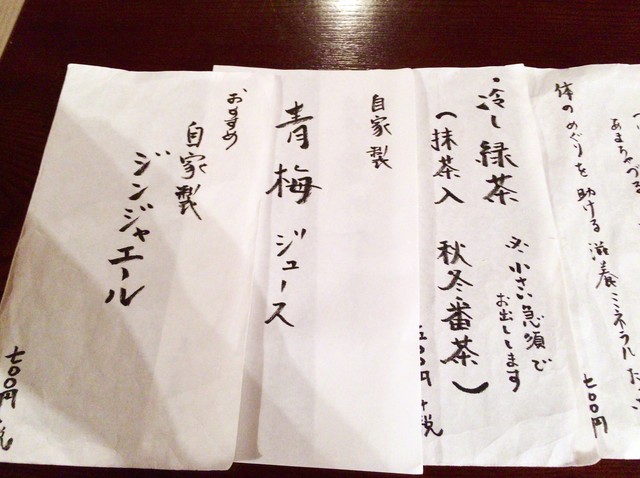 おすすめ
自家製
ジンジャエール
七〇〇円
自家製
青梅
ジュース
・冷し緑茶
(抹茶入 秋冬番茶)
小さい急須で
お出しします
五〇〇円+税
あまちゃづる
体のめぐりを助ける滋養ミネラルたっ
七〇〇円